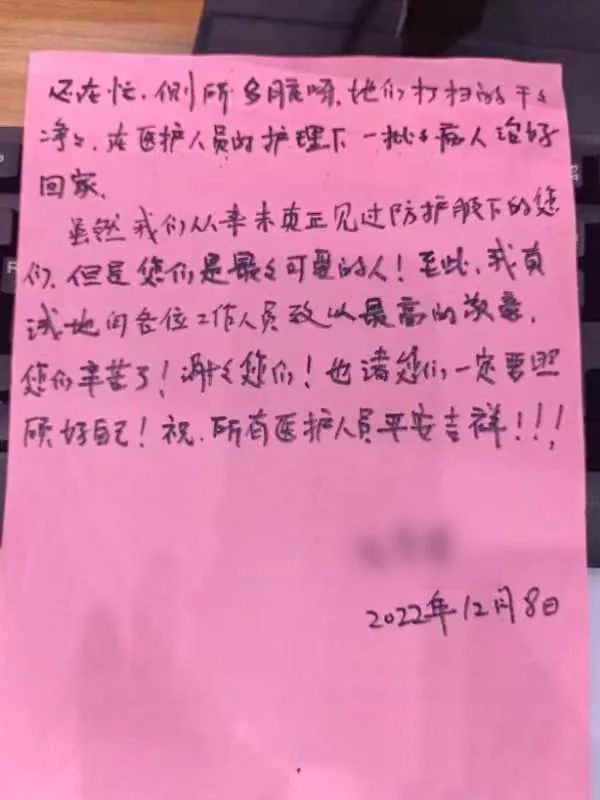 还在忙，厕所多脏呀，她们打扫的干干
净净，在医护人员的护理下一批批病人治好
回家。
虽然我们从来未真正见过防护服下的您
们，但是您们是最最可爱的人！至此，我真
诚地向各位工作人员致以最高的敬意，
您们辛苦了！谢谢您们！也请您们一定要照
顾好自己！祝，所有医护人员平安吉祥！！！
2022年12月8日